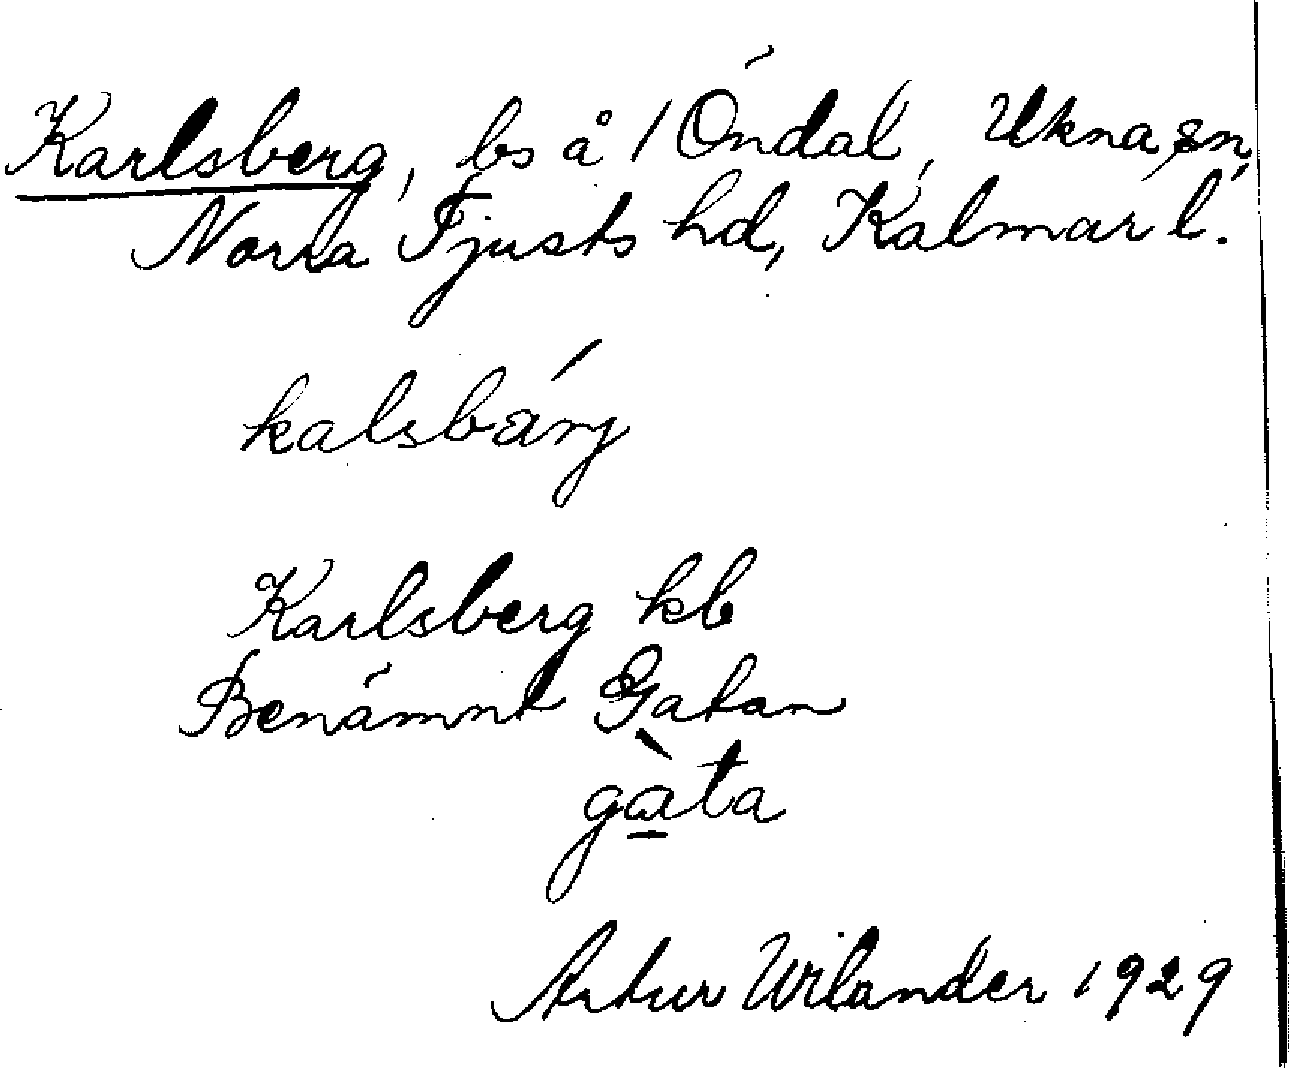 Karlsberg, bs å 1 Öndal, Ukna sn,
Norra Tjusts hd, Kalmar l.
kalsbárj
Karlsberg kb
Benämnt Gatan
gàta
Artur Wilander 1929